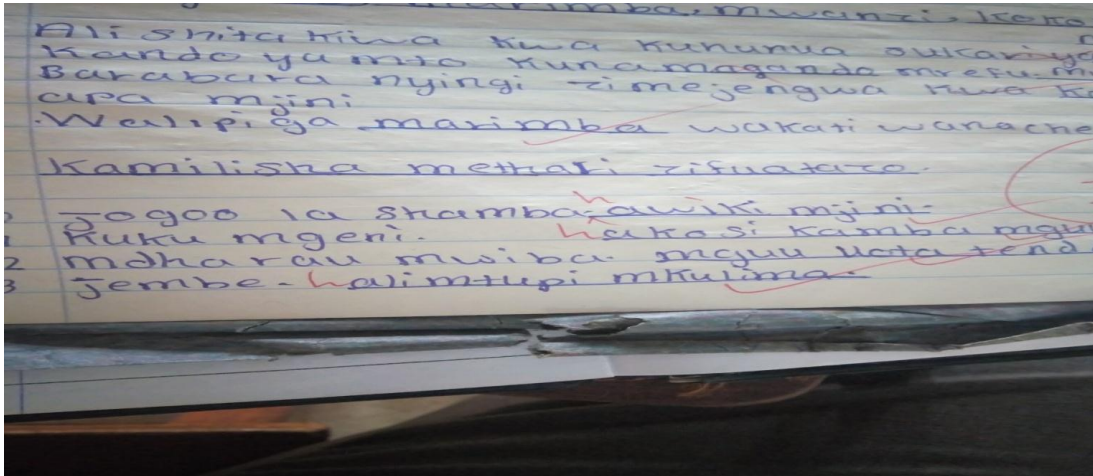 marimba, mwanzi, koko
Ali shitakiwa kwa kununua sukariya
Kando ya mto kunamaganda mrefu. m
Barabara nyingi zimejengwa kwa k
apa mjini
.Walipiga marimba wakati wanache
Kamilisha methali zifuatazo.
Jogoo la shamba-hawiki mjini-
1 Kuku mgeni. hakosi kamba mgu
2 mdharau mwiba. mguu uota tend
3 Jembe-halimtupi mkulima-